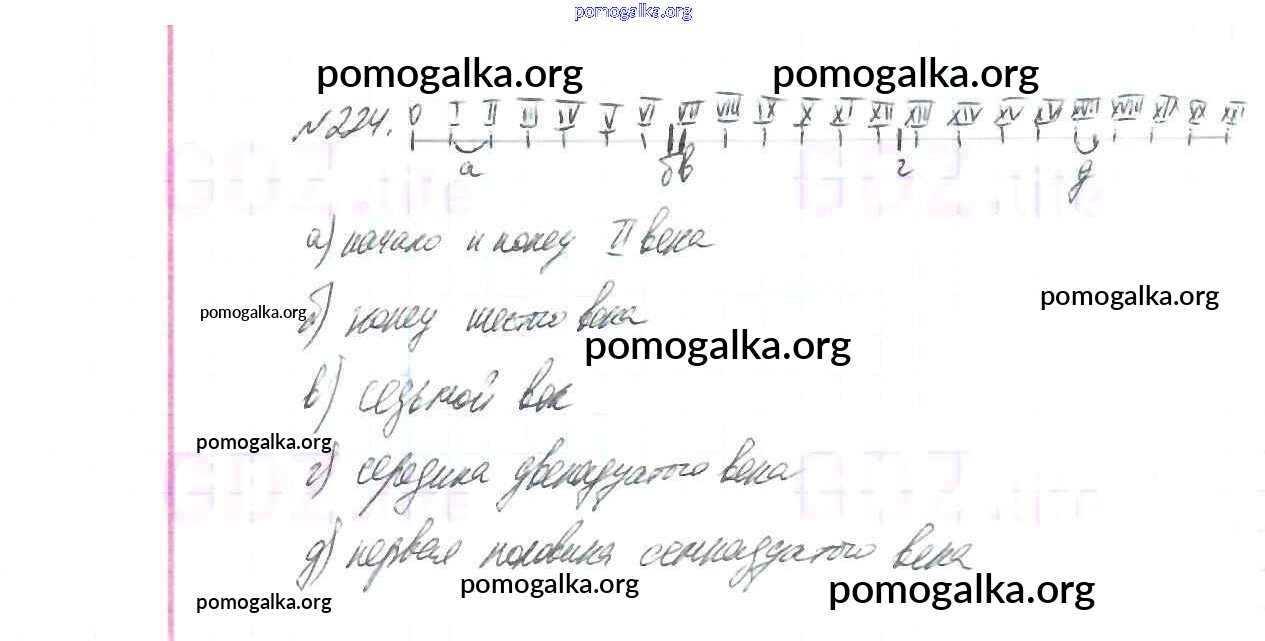 pomogalka.org
pomogalka.org pomogalka.org
№224. 0 I II III IV V VI VII VIII IX X XI XII XIII XIV XV XVI XVII XVIII XIX XX XXI
а б в г д
GDZ.life GDZ.life
а) начало и конец II века
pomogalka.org
pomogalka.org б) конец шесто века
pomogalka.org
в) седьмой век
pomogalka.org
г) середина двенадцатого века
GDZ.life GDZ.life
д) первая половина семнадцатого века
pomogalka.org pomogalka.org
pomogalka.org